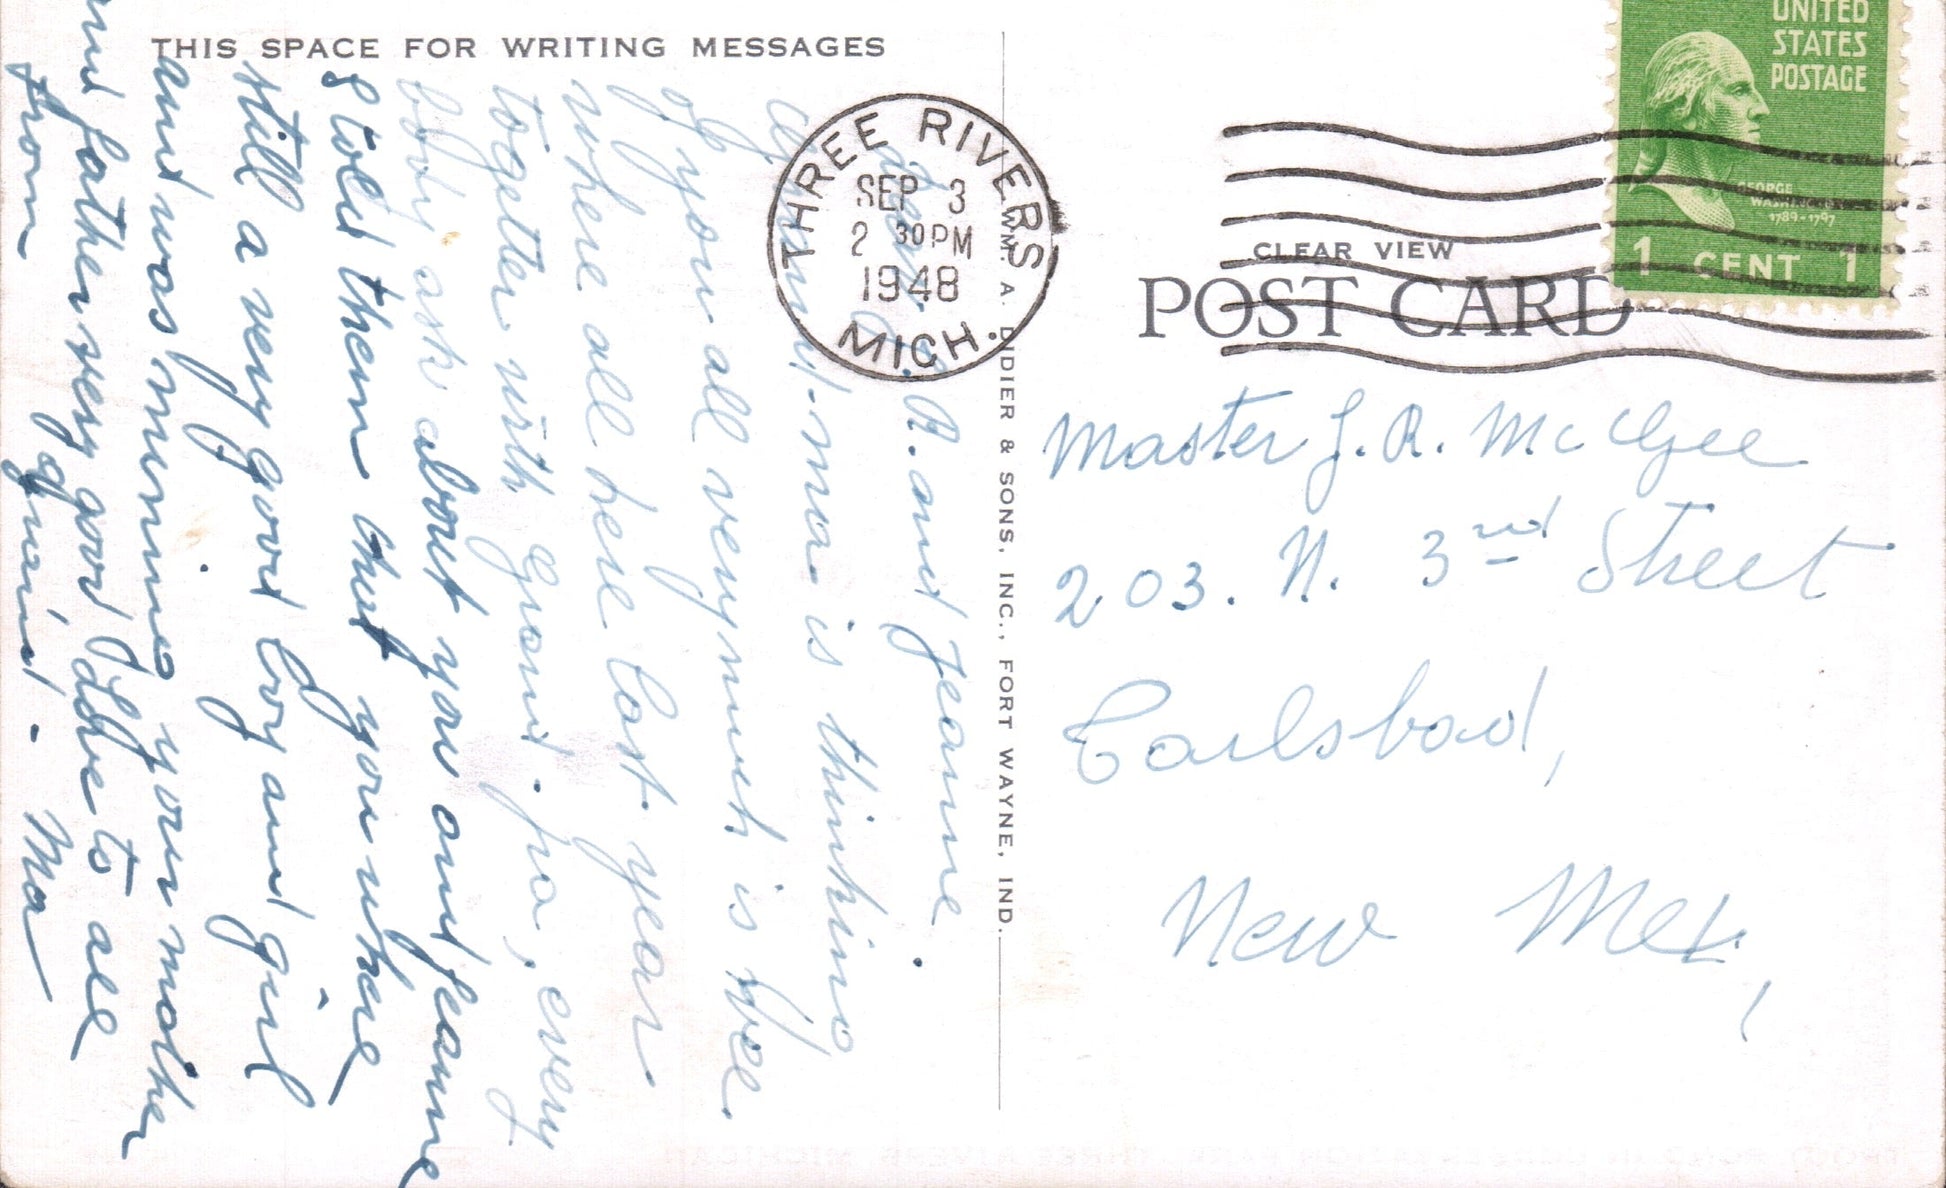 THIS SPACE FOR WRITING MESSAGES
Dear J. R. and Jeanne.
Grand-ma is thinking
of you all very much is Wee
where all here last year.
together with Grand-pa, every
body ask about you and Jeanne
I told them that you where
still a very good boy and girl
and was minning your mother
and father very good Love to all
from grand-Ma
THREE RIVERS
SEP 3
2 30 PM
1948
MICH.
WM. A. DIDIER & SONS, INC., FORT WAYNE, IND.
UNITED
STATES
POSTAGE
GEORGE
WASHINGTON
1789-1797
1 CENT 1
CLEAR VIEW
POST CARD
Master J. R. McGee
203. N. 3rd Street
Carlsbad,
New Mex,